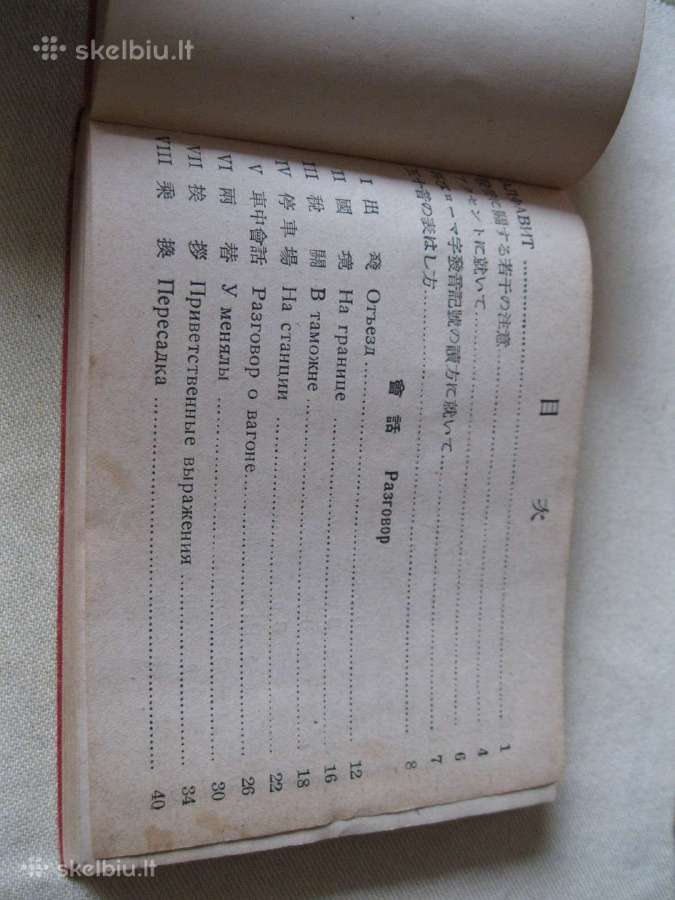 skelbiu.lt
目 次
АЛФАВИТ ........ 1
に關する若干の注意 ........ 4
クセントに就いて ........ 6
ローマ字發音記號の讀方に就いて ........ 7
音の表はし方 ........ 8
會 話 Разговор
I 出 發 Отъезд ........ 12
II 國 境 На границе ........ 16
III 稅 關 В таможне ........ 18
IV 停 車 場 На станции ........ 22
V 車中會話 Разговор о вагоне ........ 26
VI 兩 替 У менялы ........ 30
VII 挨 拶 Приветственные выражения ........ 34
VIII 乘 換 Пересадка ........ 40
skelbiu.lt